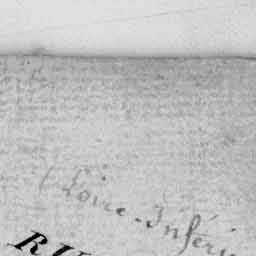 (Loire-Inféri
RU